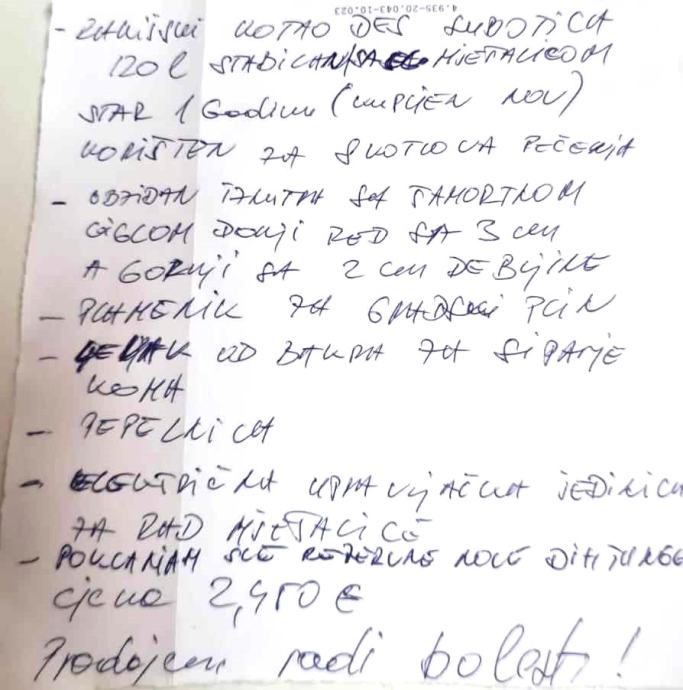 4.935-20.043-10.023
- RAKIJSKI KOTAO DES SUBOTICA
120 l STABILAN/SA MJEŠALICOM
STAR 1 Godinu (UMPIJEN NOV)
KORIŠTEN ZA 8 KOTLOVA PEČENJA
- OBZIDAN IZNUTRA SA ŠAMOTNOM
CIGLOM DONJI RED SA 3 cm
A GORNJI SA 2 cm DEBLJINE
- PLAMENIK ZA GRADSKI PLIN
- LEVAK OD BAKRA ZA SIPANJE
KOMA
- PEPELNICA
- ELEKTRIČNA UPRAVLJAČKA JEDINICA
ZA RAD MJEŠALICE
- POKLANJAM SVE REZERVNE NOVE DIHTUNGE
cjena 2,450 €
Prodajem radi bolesti!